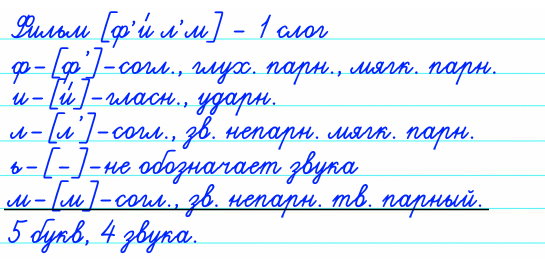 Фильм [ф’и́ л’м] – 1 слог
ф–[ф’]–согл., глух. парн., мягк. парн.
и–[и́]–гласн., ударн.
л–[л’]–согл., зв. непарн. мягк. парн.
ь–[–]–не обозначает звука
м–[м]–согл., зв. непарн. тв. парный.
5 букв, 4 звука.